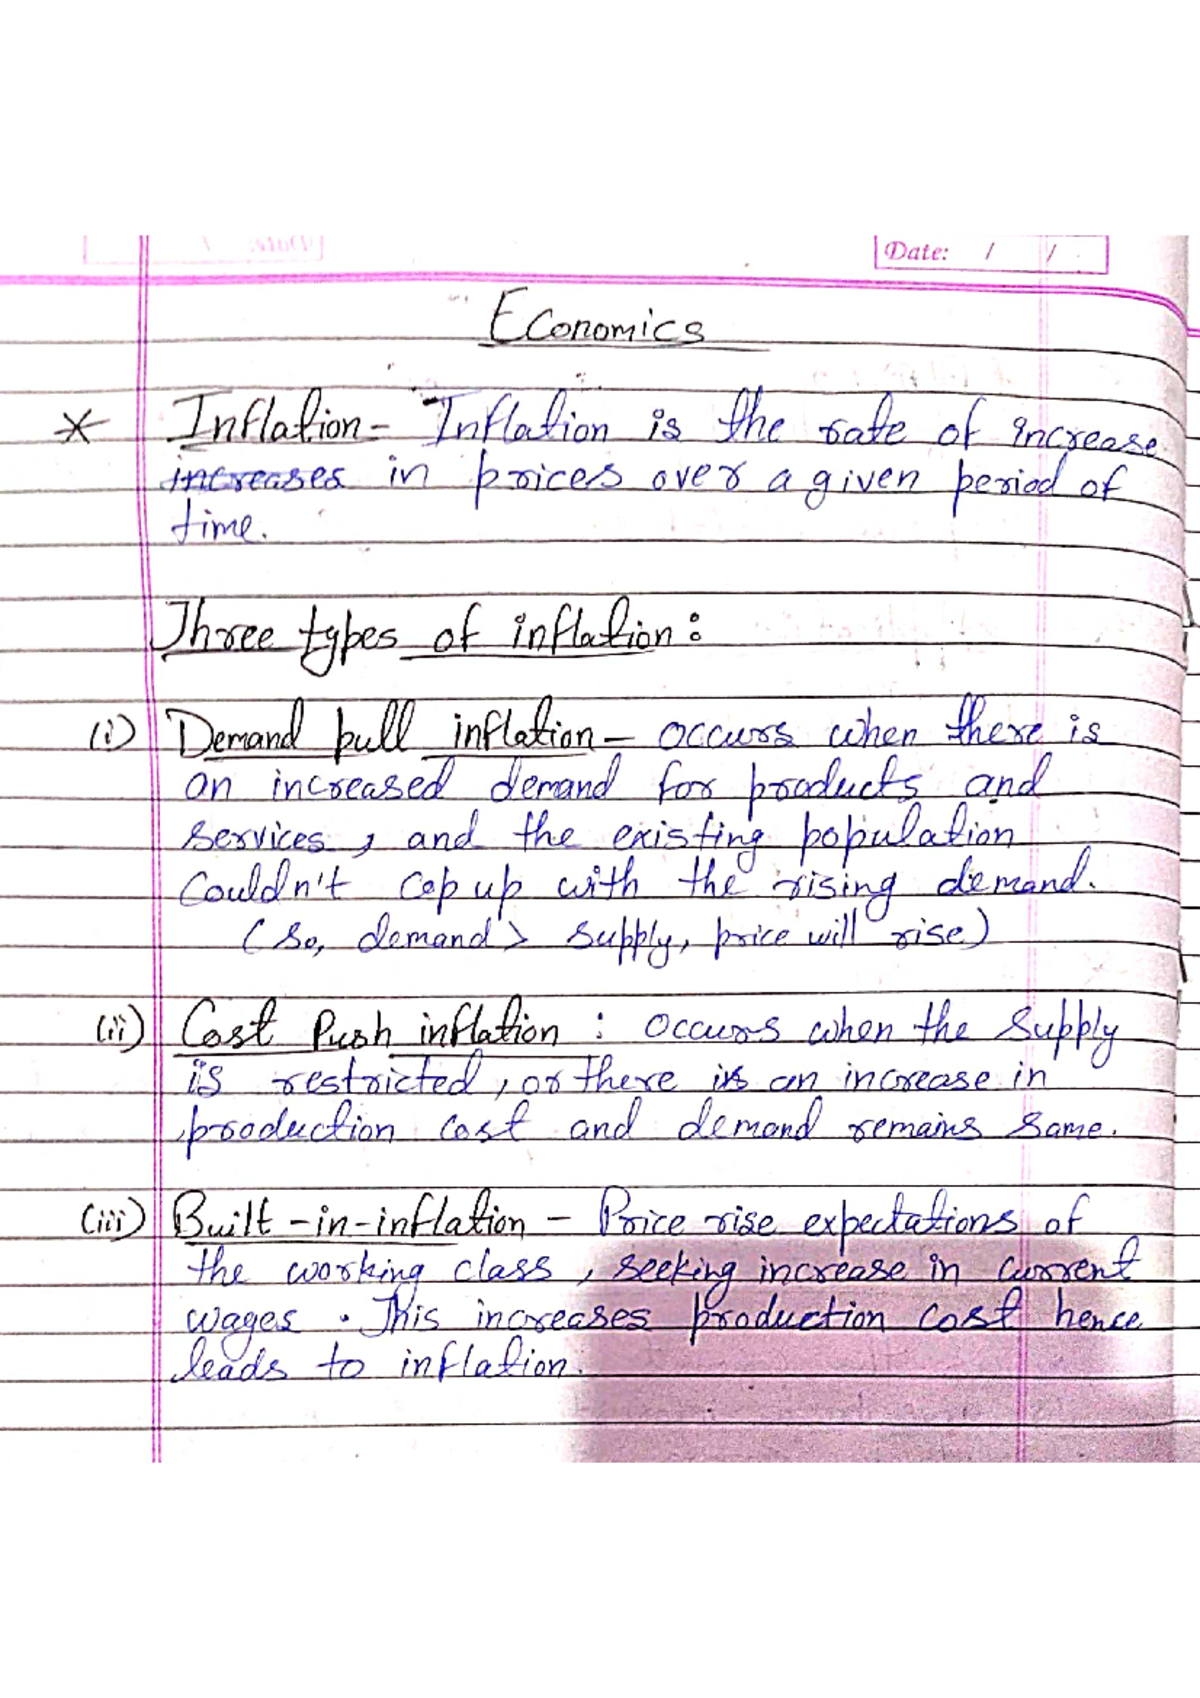 Date: / /
Economics
* Inflation - Inflation is the rate of increase
increases in prices over a given period of
time.
Three types of inflation:
(i) Demand pull inflation - occurs when there is
an increased demand for products and
services, and the existing population
Couldn't cop up with the rising demand.
(So, demand > supply, price will rise)
(ii) Cost Push inflation : occurs when the supply
is restricted, or there is an increase in
production cost and demand remains same.
(iii) Built-in-inflation - Price rise expectations of
the working class, seeking increase in current
wages. This increases production cost hence
leads to inflation.